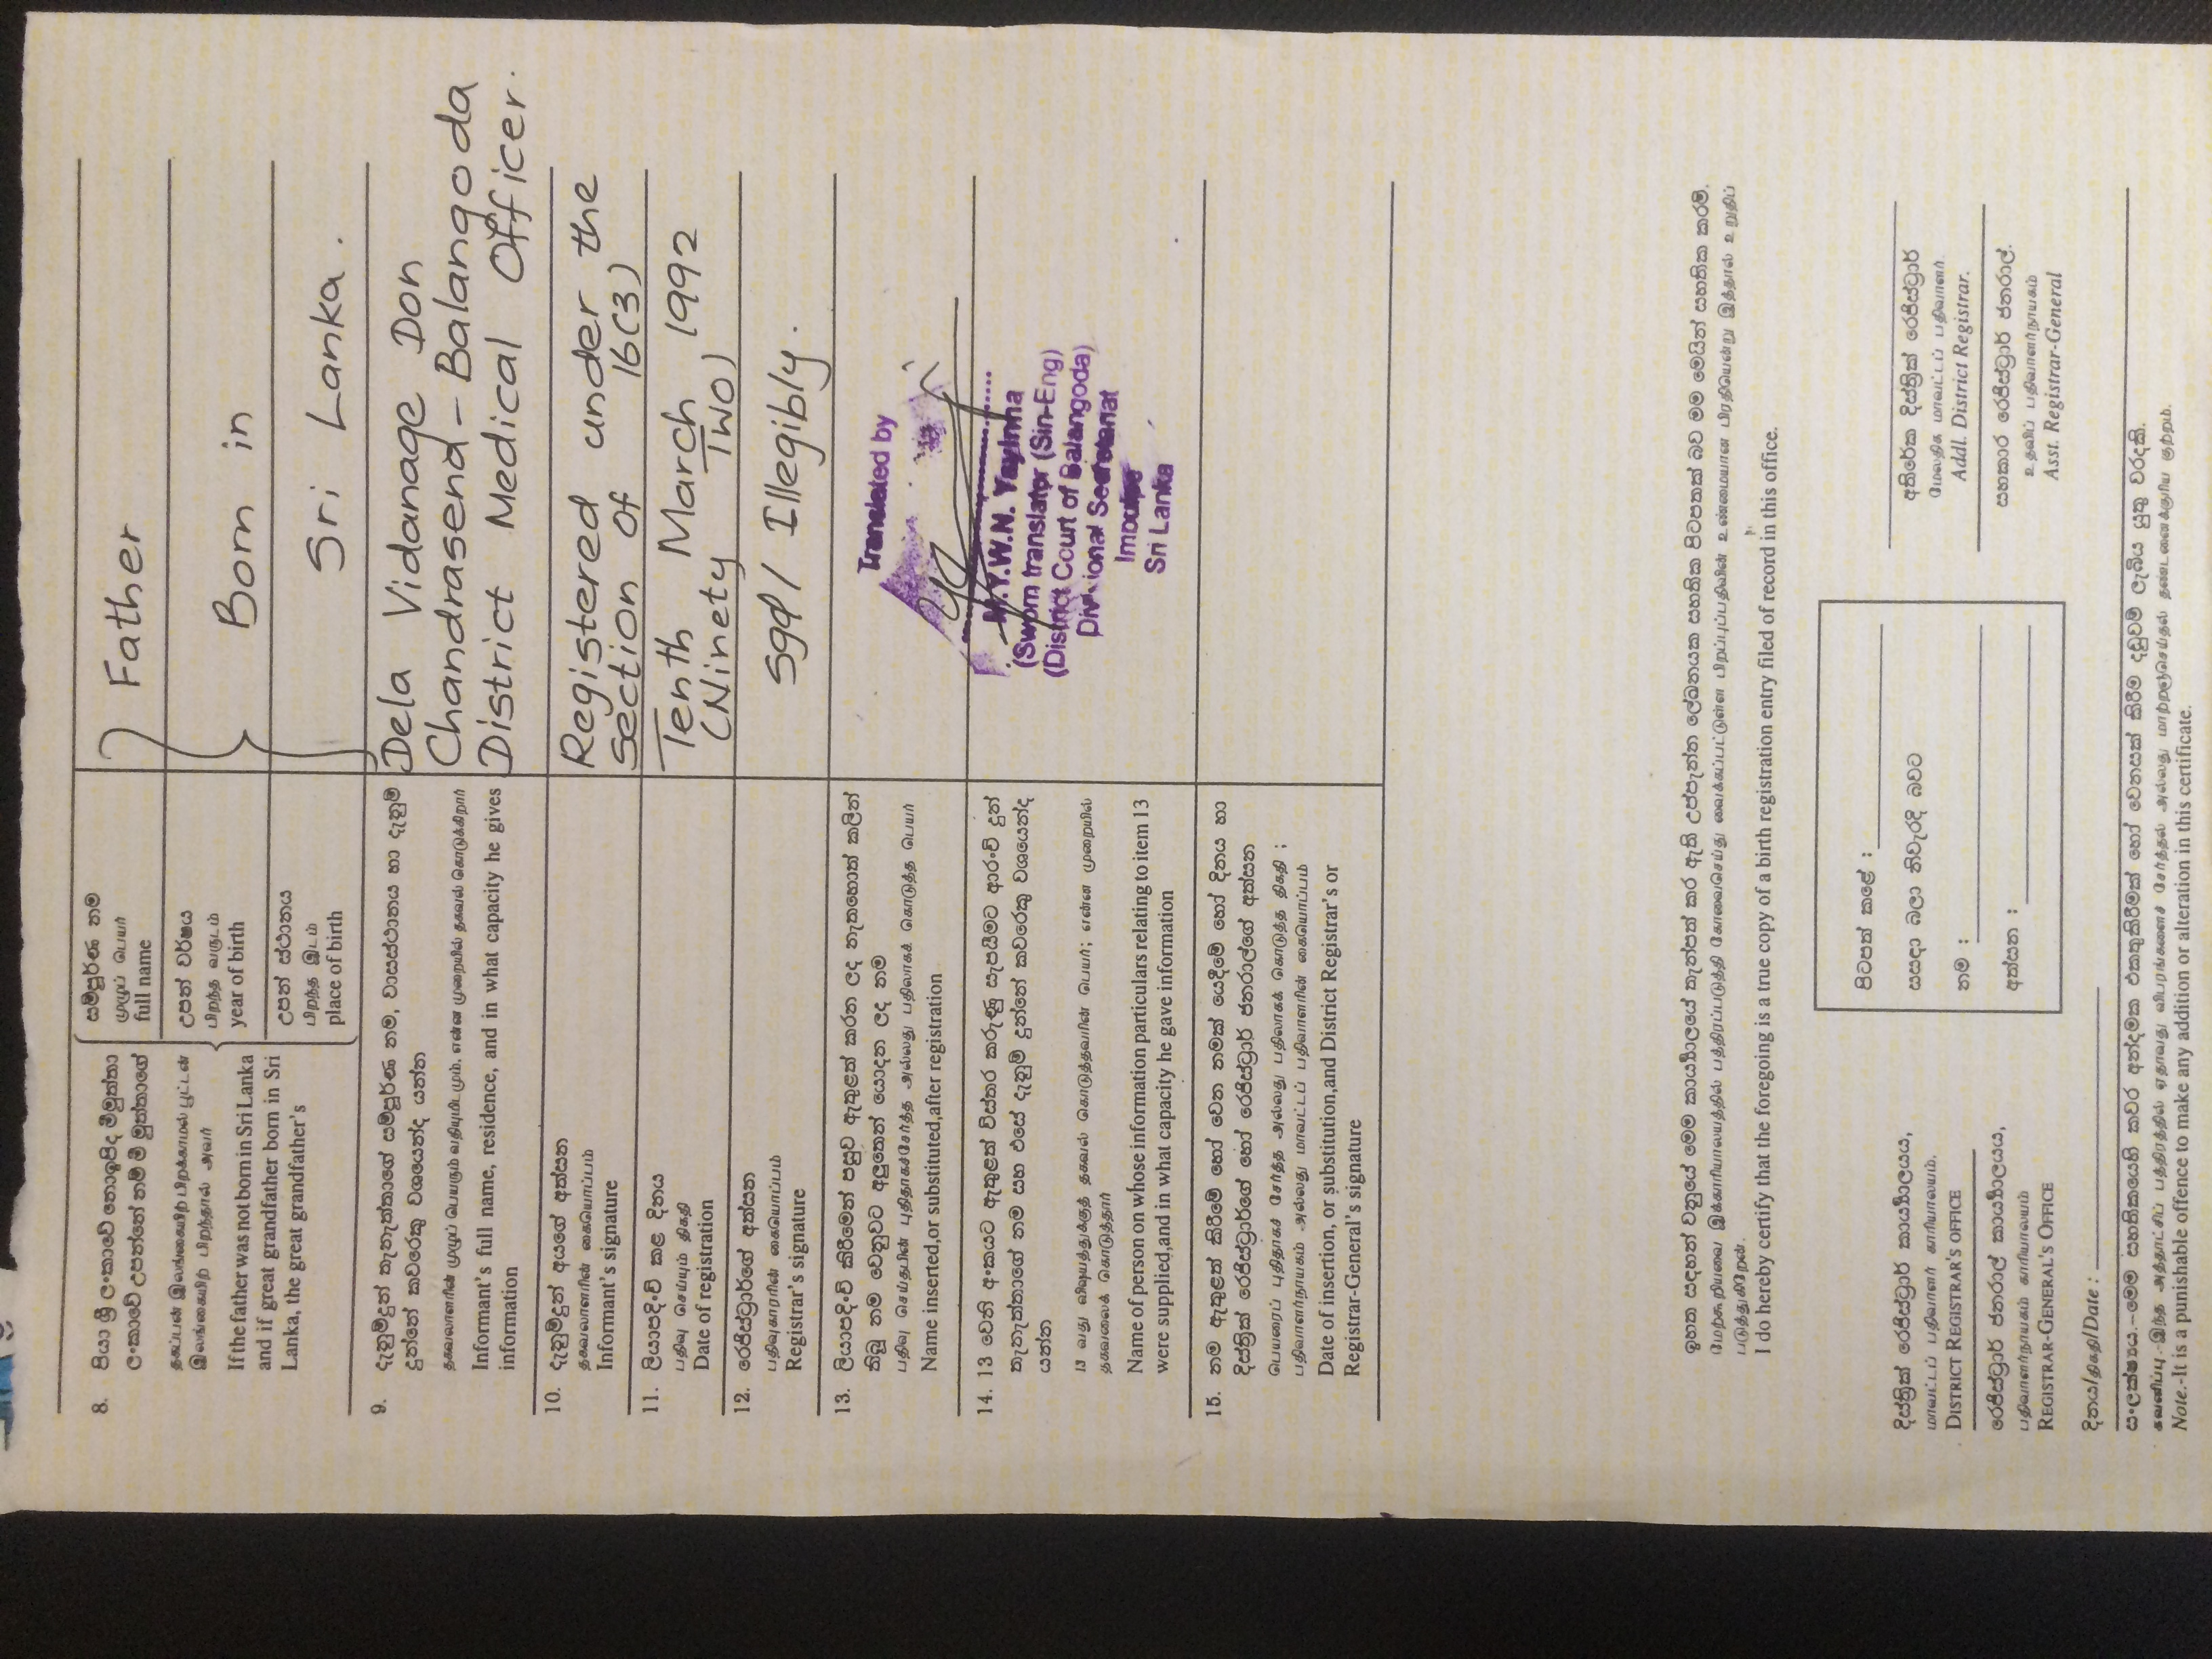 8. පියා ශ්‍රී ලංකාවේ නොඉපිද මීමුත්තා
ලංකාවේ උපන්නේ නම් මී මුත්තාගේ
தகப்பன் இலங்கையிற் பிறக்காமல் பூட்டன்
இலங்கையிற் பிறந்தால் அவர்
If the father was not born in Sri Lanka
and if great grandfather born in Sri
Lanka, the great grandfather's
සම්පූර්ණ නම
முழுப் பெயர்
full name
උපන් වර්ෂය
பிறந்த வருடம்
year of birth
උපන් ස්ථානය
பிறந்த இடம்
place of birth
Father
Born in
Sri Lanka.
9. දැනුම්දුන් තැනැත්තාගේ සම්පූර්ණ නම, වාසස්ථානය හා දැනුම්
දුන්නේ කවරෙකු වශයෙන්ද යන්න
தகவலாளரின் முழுப் பெயரும் வதியுமிடமும், என்ன முறையில் தகவல் கொடுக்கிறார்
Informant's full name, residence, and in what capacity he gives
information
Dela Vidanage Don
Chandrasena - Balangoda
District Medical Officer.
10. දැනුම්දුන් අයගේ අත්සන
தகவலாளரின் கையொப்பம்
Informant's signature
Registered under the
section of 16(3)
11. ලියාපදිංචි කළ දිනය
பதிவு செய்யும் திகதி
Date of registration
Tenth March 1992
(Ninety Two)
12. රෙජිස්ට්‍රාර්ගේ අත්සන
பதிவுகாரரின் கையொப்பம்
Registrar's signature
Sgd/ Illegibly.
13. ලියාපදිංචි කිරීමෙන් පසුව ඇතුළත් කරන ලද නැතහොත් කලින්
තිබූ නම වෙනුවට අලුතෙන් යොදන ලද නම
பதிவு செய்தபின் புதிதாகச்சேர்த்த அல்லது பதிலாகக் கொடுத்த பெயர்
Name inserted,or substituted,after registration
Translated by
M.Y.W.N. Yayinna
(Sworn translator (Sin-Eng)
(District Court of Balangoda)
Divisional Secretariat
Imbulpe
Sri Lanka
14. 13 වෙනි අංකයට ඇතුළත් විස්තර කරුණු සැපයීමට ආරංචි දුන්
තැනැත්තාගේ නම සහ එසේ දැනුම් දුන්නේ කවරෙකු වශයෙන්ද
යන්න
13 வது விஷயத்துக்குத் தகவல் கொடுத்தவரின் பெயர்; என்ன முறையில்
தகவலைக் கொடுத்தார்
Name of person on whose information particulars relating to item 13
were supplied,and in what capacity he gave information
15. නම ඇතුළත් කිරීමේ හෝ වෙන නමක් යෙදීමේ හෝ දිනය හා
දිස්ත්‍රික් රෙජිස්ට්‍රාර්ගේ හෝ රෙජිස්ට්‍රාර් ජනරාල්ගේ අත්සන
பெயரைப் புதிதாகச் சேர்த்த அல்லது பதிலாகக் கொடுத்த திகதி ;
பதிவாளர்நாயகம் அல்லது மாவட்டப் பதிவாளரின் கையொப்பம்
Date of insertion, or substitution,and District Registrar's or
Registrar-General's signature
ඉහත සඳහන් වනුයේ මෙම කාර්‍ය්‍යාලයේ තැන්පත් කර ඇති උප්පැන්න ලේඛනයක සහතික පිටපතක් බව මම මෙයින් සහතික කරමි.
மேற்கூறியவை இக்காரியாலயத்தில் பத்திரப்படுத்தி கோவைசெய்து வைக்கப்பட்டுள்ள பிறப்புப்பதிவின் உண்மையான பிரதியென்று இத்தால் உறுதிப்
படுத்துகிறேன்.
I do hereby certify that the foregoing is a true copy of a birth registration entry filed of record in this office.
දිස්ත්‍රික් රෙජිස්ට්‍රාර් කාර්‍ය්‍යාලයය,
மாவட்டப் பதிவாளர் காரியாலயம்.
DISTRICT REGISTRAR'S OFFICE
රෙජිස්ට්‍රාර් ජනරාල් කාර්‍ය්‍යාලයය,
பதிவாளர்நாயகம் காரியாலயம்
REGISTRAR-GENERAL'S OFFICE
දිනය/திகதி/Date :
පිටපත් කළේ :
සසඳා බලා නිවැරදි බවට
නම :
අත්සන :
අතිරේක දිස්ත්‍රික් රෙජිස්ට්‍රාර්
மேலதிக மாவட்டப் பதிவாளர்.
Addl. District Registrar.
සහකාර රෙජිස්ට්‍රාර් ජනරාල්.
உதவிப் பதிவாளர்நாயகம்
Asst. Registrar-General
සංලක්ෂ්‍යය.–මෙම සහතිකයෙහි කවර අන්දමක එකතුකිරීමක් හෝ වෙනසක් කිරීම දඬුවම් ලැබිය යුතු වරදකි.
கவனிப்பு.-இந்த அத்தாட்சிப் பத்திரத்தில் ஏதாவது விபரங்களைச் சேர்த்தல் அல்லது மாற்றஞ்செய்தல் தண்டனைக்குரிய குற்றம்.
Note.-It is a punishable offence to make any addition or alteration in this certificate.